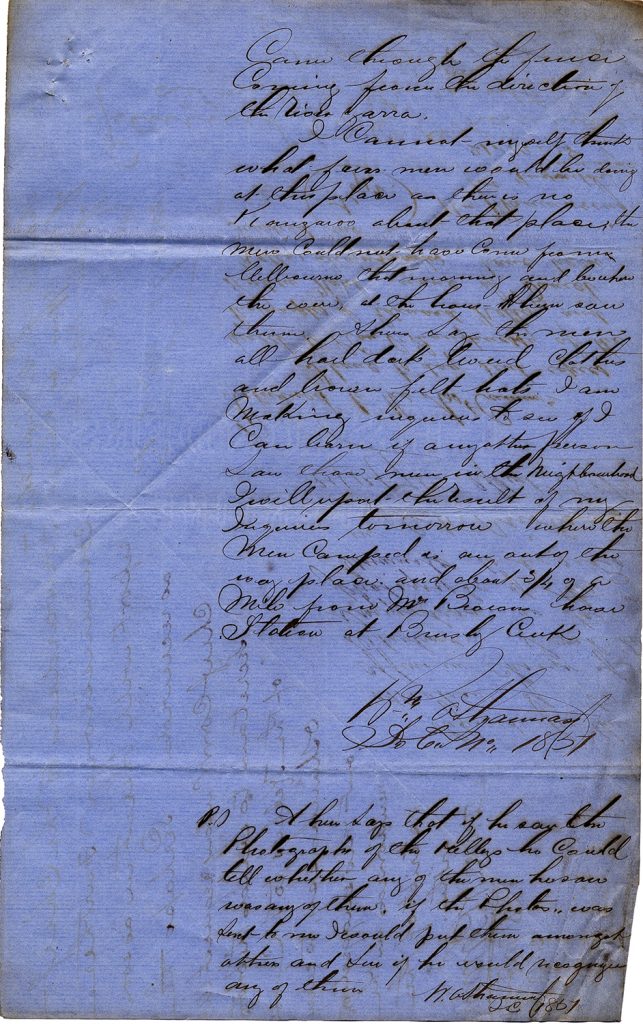 Came through the fence
Coming from the direction of
the River Yarra.
I Cannot myself think
what four men would be doing
at this place as there is no
Kangaroo about that place, the
men could not have come from
Melbourne that morning and be where
they were, at the hour Ahern saw
them. Ahern says the men
all had dark tweed clothes
and brown felt hats I am
Making inquiries to see if I
Can learn if any other person
saw these men in the Neighbourhood
I will report the result of my
Inquiries tomorrow where the
Men Camped is an out of the
way place. and about 3/4 of a
Mile from Mr Browns house
Station at Brushy Creek
Wm
Sr C. No. 1867
P.S Ahern Says that if he saw the
Photographs of the Kellys he Could
tell whether any of the men he saw
was any of them. if the Photos.. was
Sent to me I would put them amongst
others and see if he would recognize
any of them
W
S C 1867